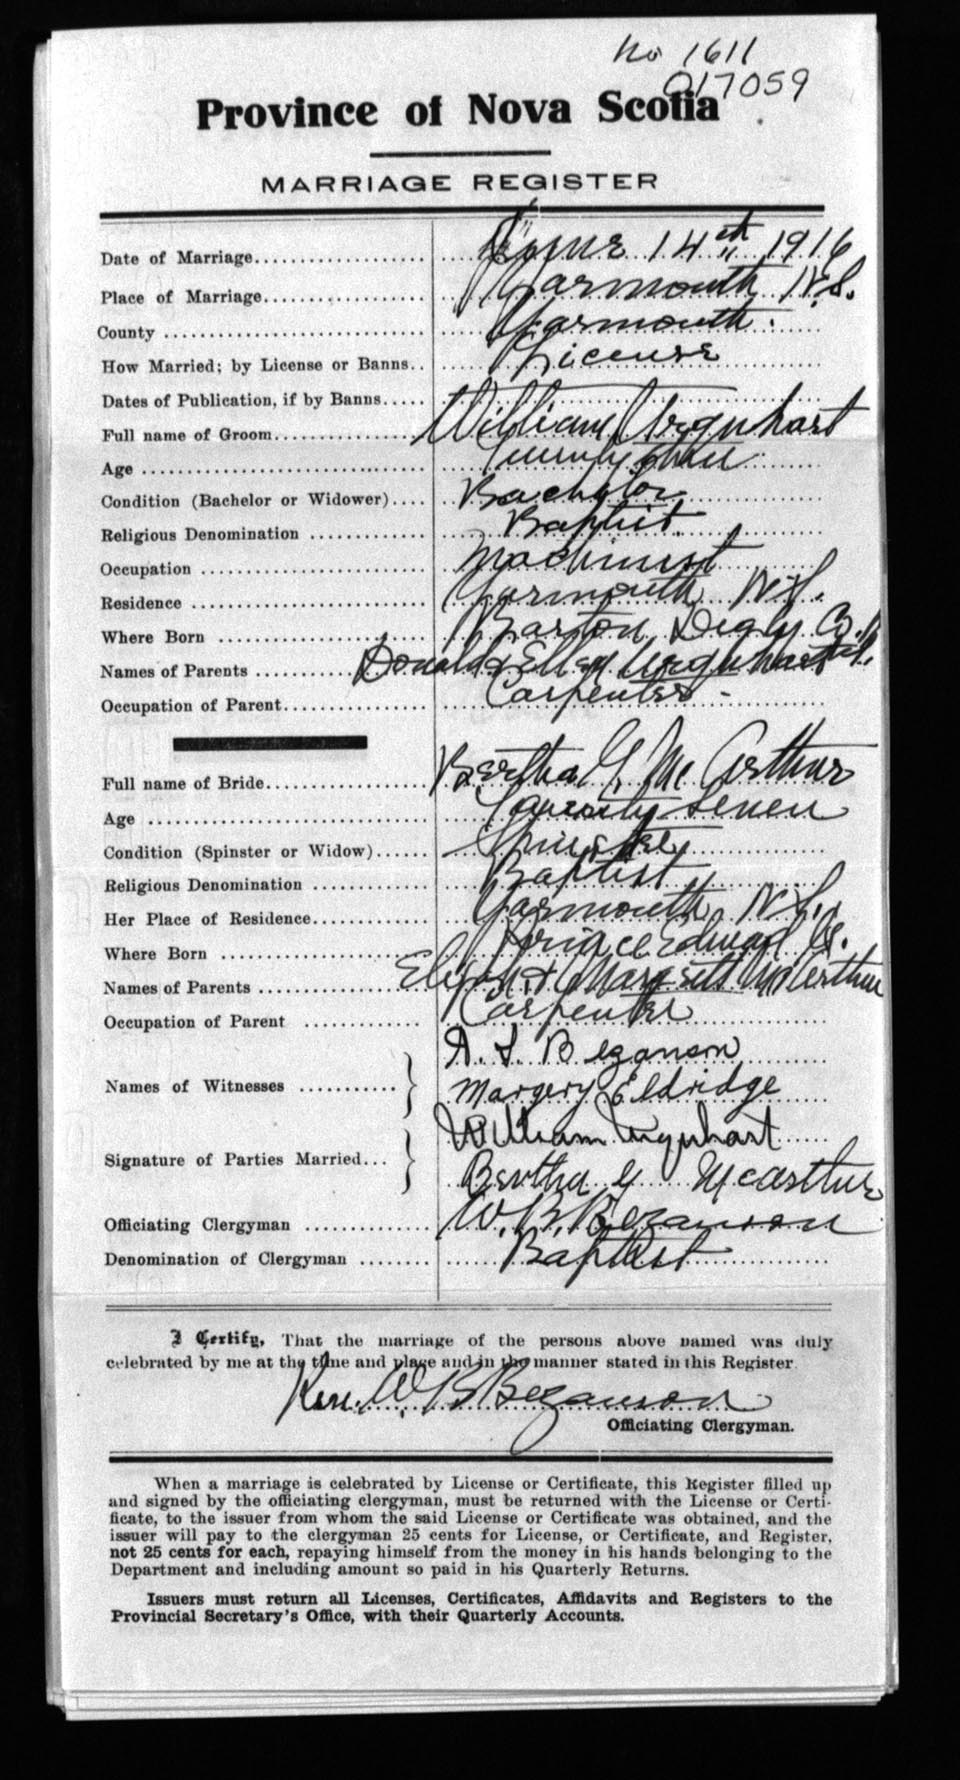 No 1611
017059
Province of Nova Scotia
MARRIAGE REGISTER
Date of Marriage June 14th 1916
Place of Marriage Yarmouth N.S.
County Yarmouth.
How Married; by License or Banns License
Dates of Publication, if by Banns
Full name of Groom William Urquhart
Age Twenty
Condition (Bachelor or Widower) Bachelor
Religious Denomination Baptist.
Occupation Machinist
Residence Yarmouth N.S.
Where Born Barton, Digby Co. N.S.
Names of Parents Donald & Ellen Urquhart
Occupation of Parent Carpenter
Full name of Bride Bertha G. Mc Arthur
Age Twenty seven
Condition (Spinster or Widow) Spinster
Religious Denomination Baptist
Her Place of Residence Yarmouth N.S.
Where Born Prince Edward Is.
Names of Parents Elijah & Margrett McArthur
Occupation of Parent Carpenter
Names of Witnesses A. L. Bezanson
Margery Eldridge
Signature of Parties Married William Urquhart
Bertha G McArthur
Officiating Clergyman W. B. Bezanson
Denomination of Clergyman Baptist
I Certify, That the marriage of the persons above named was duly
celebrated by me at the time and place and in the manner stated in this Register.
Rev. W. B Bezanson
Officiating Clergyman.
When a marriage is celebrated by License or Certificate, this Register filled up
and signed by the officiating clergyman, must be returned with the License or Certi-
ficate, to the issuer from whom the said License or Certificate was obtained, and the
issuer will pay to the clergyman 25 cents for License, or Certificate, and Register,
not 25 cents for each, repaying himself from the money in his hands belonging to the
Department and including amount so paid in his Quarterly Returns.
Issuers must return all Licenses, Certificates, Affidavits and Registers to the
Provincial Secretary's Office, with their Quarterly Accounts.